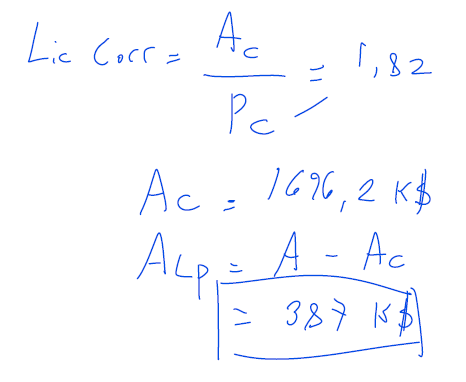 Lic Corr = Ac / Pc = 1,82
Ac = 1696,2 K$
ALp = A - Ac
= 387 K$